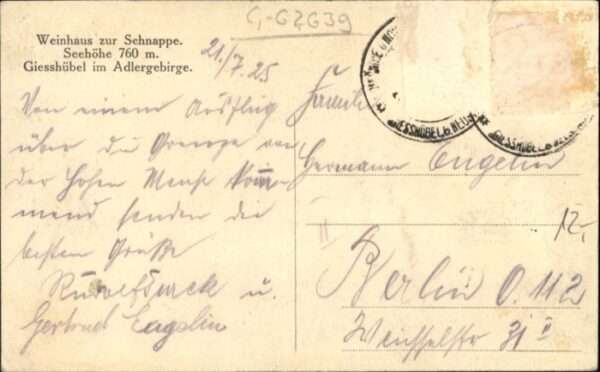 G-G2G39
Weinhaus zur Schnappe.
Seehöhe 760 m.
Giesshübel im Adlergebirge.
21./7.25
Von einem Ausflug
über die Grenze von
der Hohen Mense kom-
mend senden die
besten Grüße
Rudolf u.
Gertrud Engelin
Familie
Hermann Engelin
12,-
Berlin O. 112
Weichselstr 31 II
GIESSHÜBEL b. NEUS
GIESSHÜBEL b. NEUS